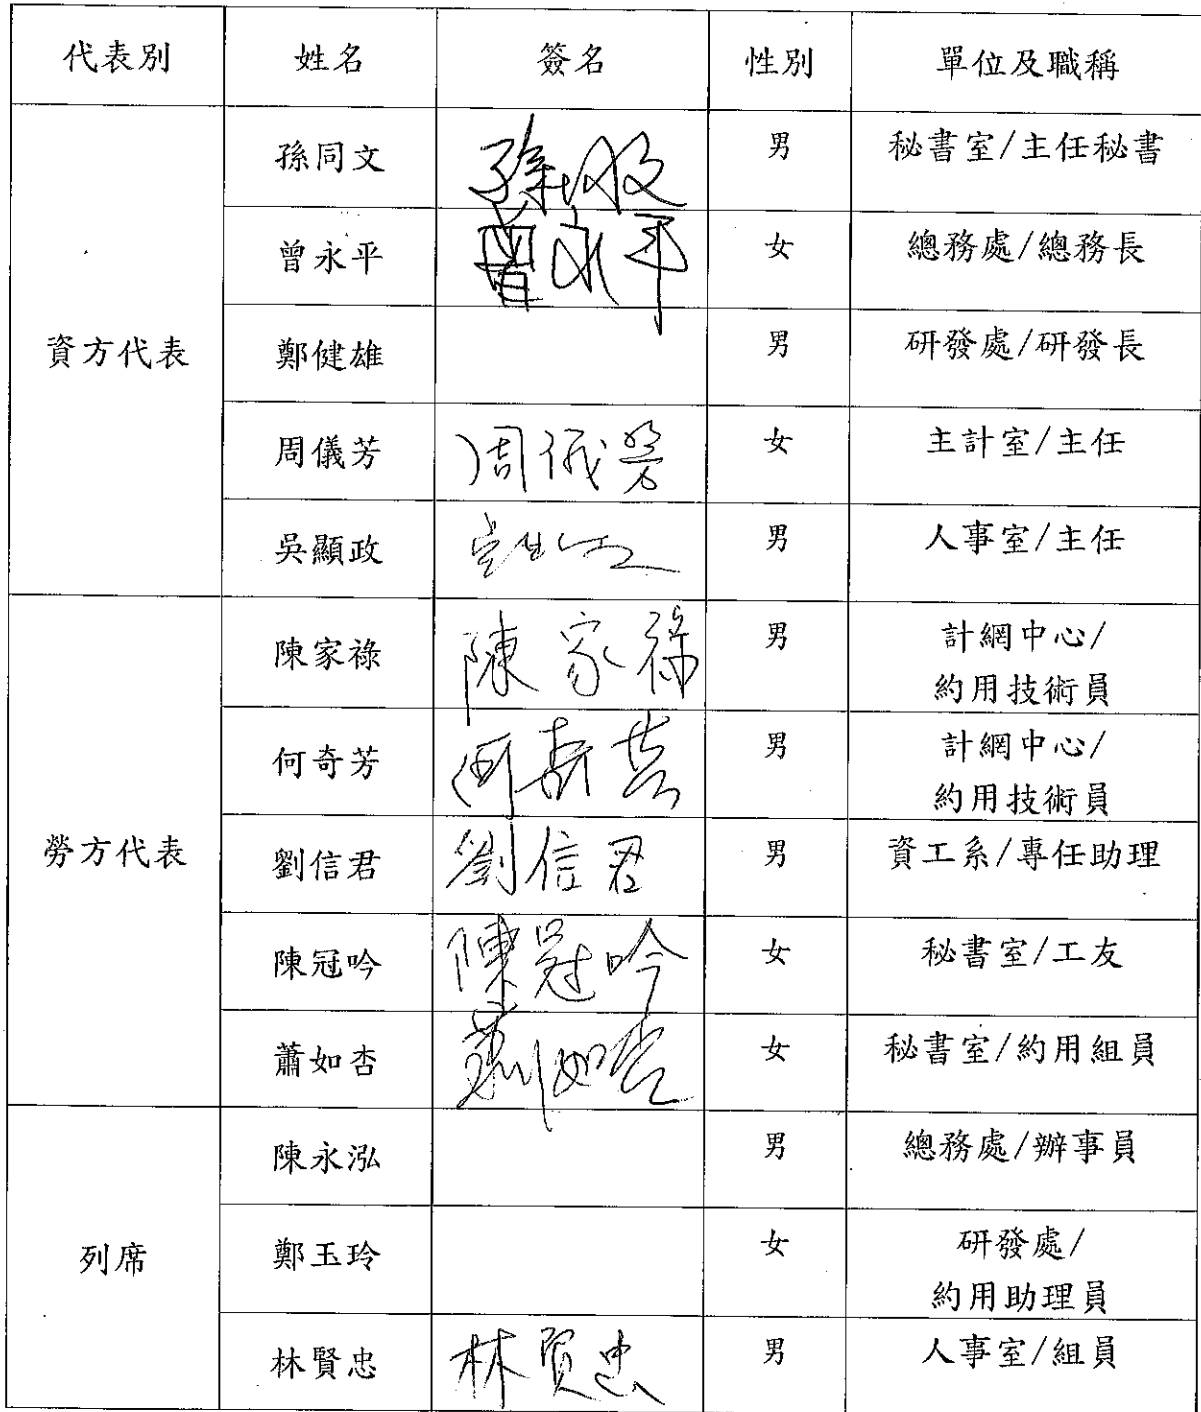 代表別 姓名 簽名 性別 單位及職稱
資方代表
孫同文 男 秘書室/主任秘書
曾永平 曾永平 女 總務處/總務長
鄭健雄 男 研發處/研發長
周儀芳 周儀芳 女 主計室/主任
吳顯政 男 人事室/主任
勞方代表
陳家祿 陳家祿 男 計網中心/
約用技術員
何奇芳 何奇芳 男 計網中心/
約用技術員
劉信君 劉信君 男 資工系/專任助理
陳冠吟 陳冠吟 女 秘書室/工友
蕭如杏 蕭如杏 女 秘書室/約用組員
列席
陳永泓 男 總務處/辦事員
鄭玉玲 女 研發處/
約用助理員
林賢忠 林賢忠 男 人事室/組員